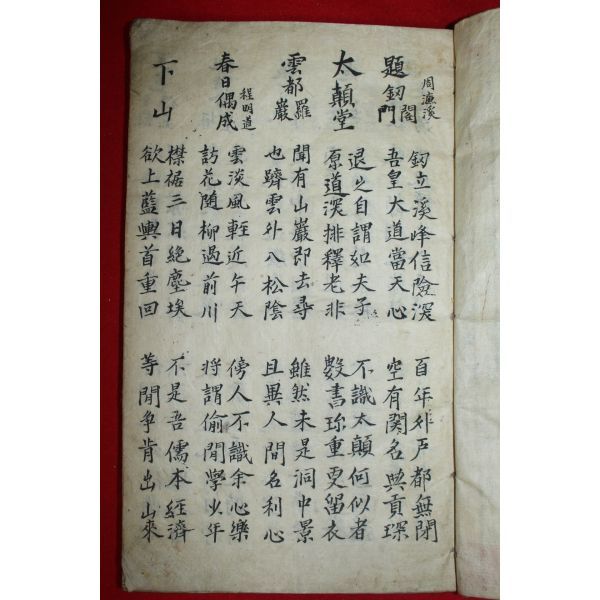 題釼閣門
周濂溪
釼立溪峰信險深
吾皇大道當天心
百年外戶都無閉
空有關名典貢琛
太顚堂
退之自謂如夫子
原道深排釋老非
不識太顚何似者
數書珎重更留衣
雲都羅巖
聞有山巖即去尋
也躋雲外入松陰
雖然未是洞中景
且異人間名利心
春日偶成
程明道
雲淡風輊近午天
訪花隨柳過前川
傍人不識余心樂
將謂偷閒學少年
下山
襟裾三日絶塵埃
欲上藍輿首重回
不是吾儒本經濟
等閒爭肯出山來